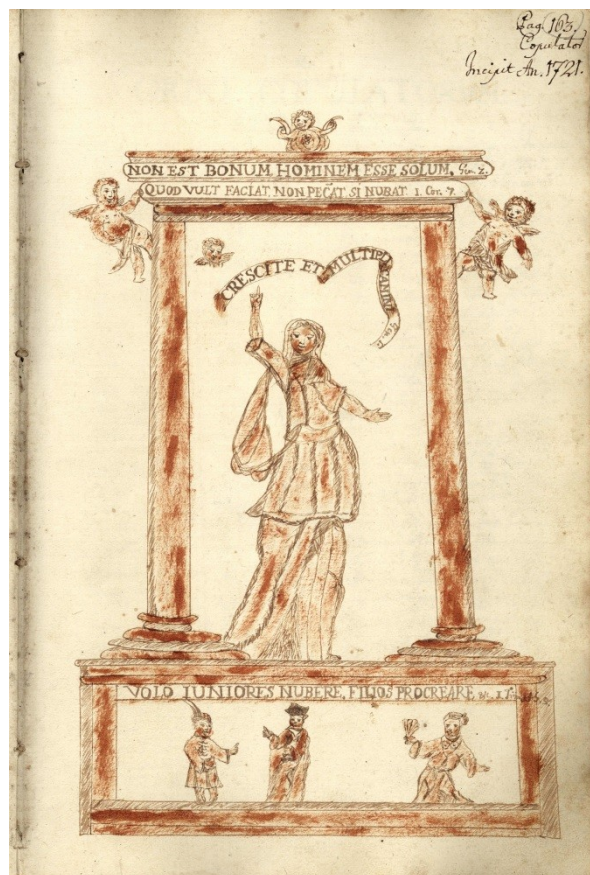 Pag. 163.
Copulator
Incipit An. 1721.
NON EST BONUM HOMINEM ESSE SOLUM. Gen. 2.
QUOD VULT FACIAT, NON PECAT SI NUBAT 1. Cor. 7.
CRESCITE ET MULTIPLICAMINI Gen. 1.
VOLO IUNIORES NUBERE, FILIOS PROCREARE